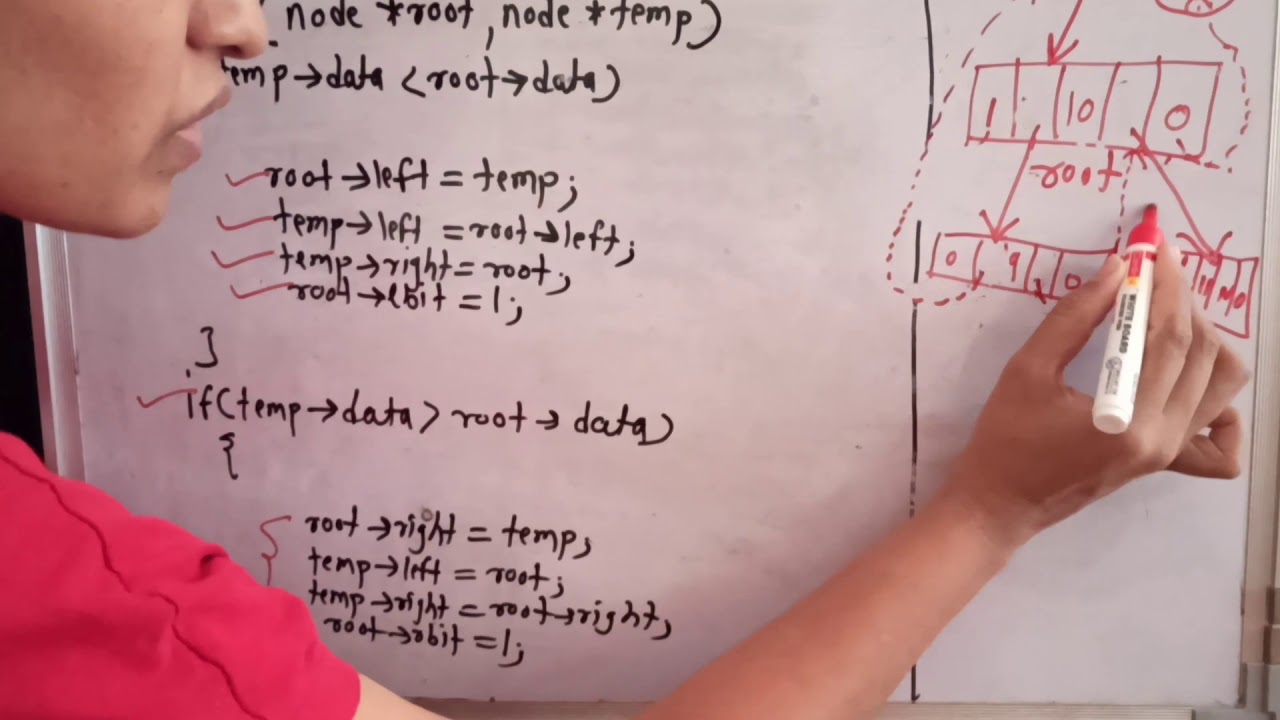 node *root, node *temp)
temp→data <root→data)
root→left = temp;
temp→left =root→left;
temp→right= root;
root→lbit = 1;
}
if(temp→data> root→data)
{
root→right = temp;
temp→left = root;
temp→right = root→right;
root→rbit =1;
1 10 0
root
0 9 0
WHITE BOARD